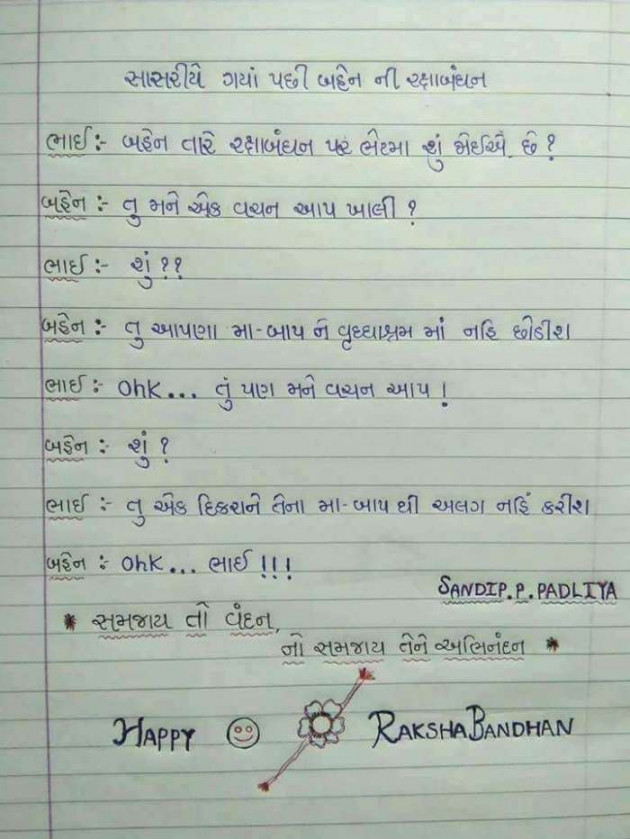 સાસરીયે ગયાં પછી બહેન ની રક્ષાબંધન
ભાઈ:- બહેન તારે રક્ષાબંધન પર ભેટમા શું જોઈએ છે ?
બહેન :- તુ મને એક વચન આપ ખાલી ?
ભાઈ :- શું ??
બહેન :- તુ આપણા મા-બાપ ને વૃધ્ધાશ્રમ માં નહિ છોડીશ
ભાઈ :- Ohk... તું પણ મને વચન આપ !
બહેન :- શું ?
ભાઈ :- તુ એક દિકરાને તેના મા-બાપ થી અલગ નહિં કરીશ
બહેન :- Ohk... ભાઈ !!!
SANDIP.P.PADLIYA
* સમજાય તો વંદન,
નો સમજાય તેને અભિનંદન *
HAPPY RAKSHABANDHAN